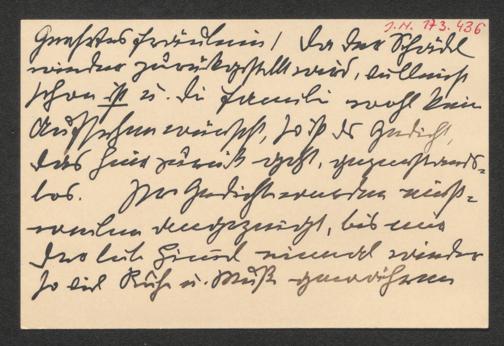 J.N. 173.436
Geehrtes Fräulein! Da der Schädl
wieder zurückgestellt wird, vielleicht
schon ist u. die Familie wohl kein
Aufsehen wünscht, so ist das Gedicht,
das hier zurück geht, gegenstands-
los. Ihre Gedichte werden
angezeigt, bis uns
der liebe Himmel einmal wieder
so viel Ruhe u. Muße gewähren